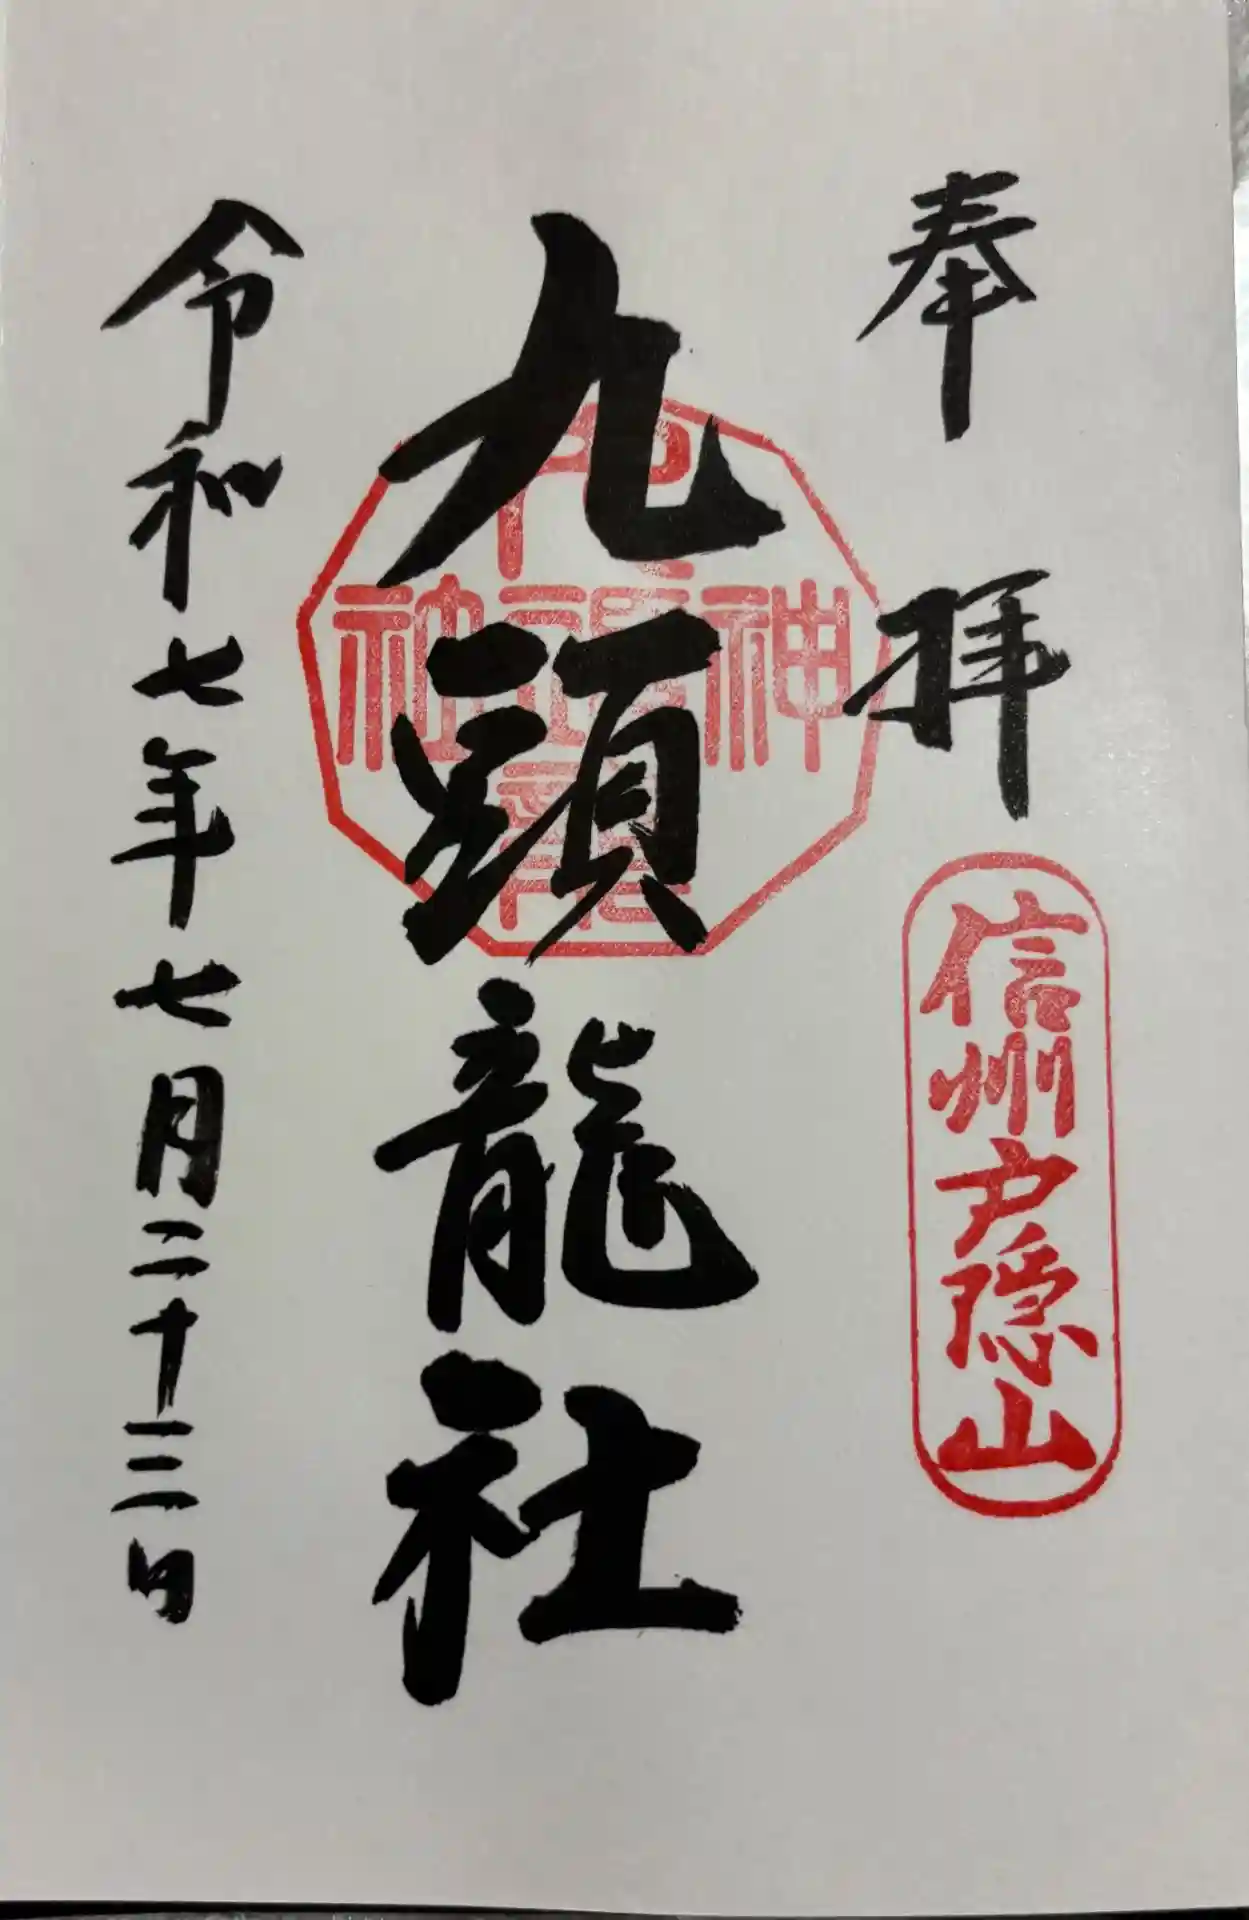 奉拝
信州戸隠山
九頭龍社
神
社
令和七年七月二十三日